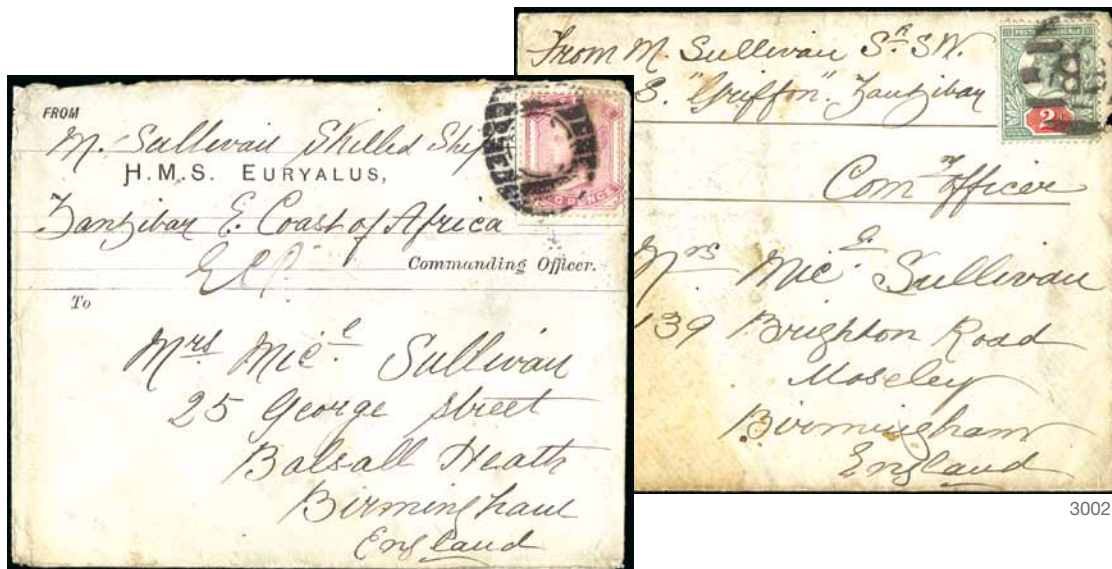 FROM
M. Sullivan Skilled Ship
H.M.S. EURYALUS,
Zanzibar E. Coast of Africa
Commanding Officer.
To
Mrs Micl Sullivan
25 George street
Balsall Heath
Birmingham
England
From M. Sullivan
S. "Griffon". Zanzibar
POSTAGE REVENUE
2d
B
Comg Officer
Mrs Micl Sullivan
139 Brighton Road
Moseley
Birmingham
England
3002